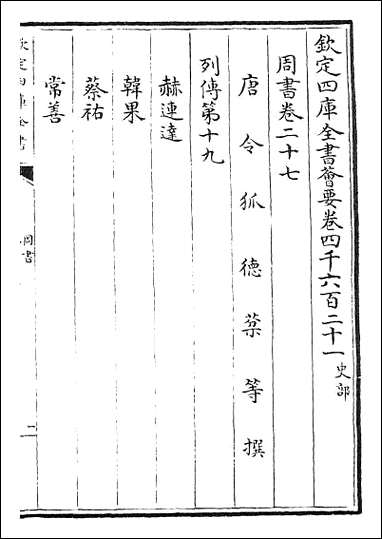 欽定四庫全書薈要卷四千六百二十一史部
周書卷二十七
唐令狐德棻等撰
列傳第十九
赫連達
韓果
蔡祐
常善
欽定四庫全書
周書